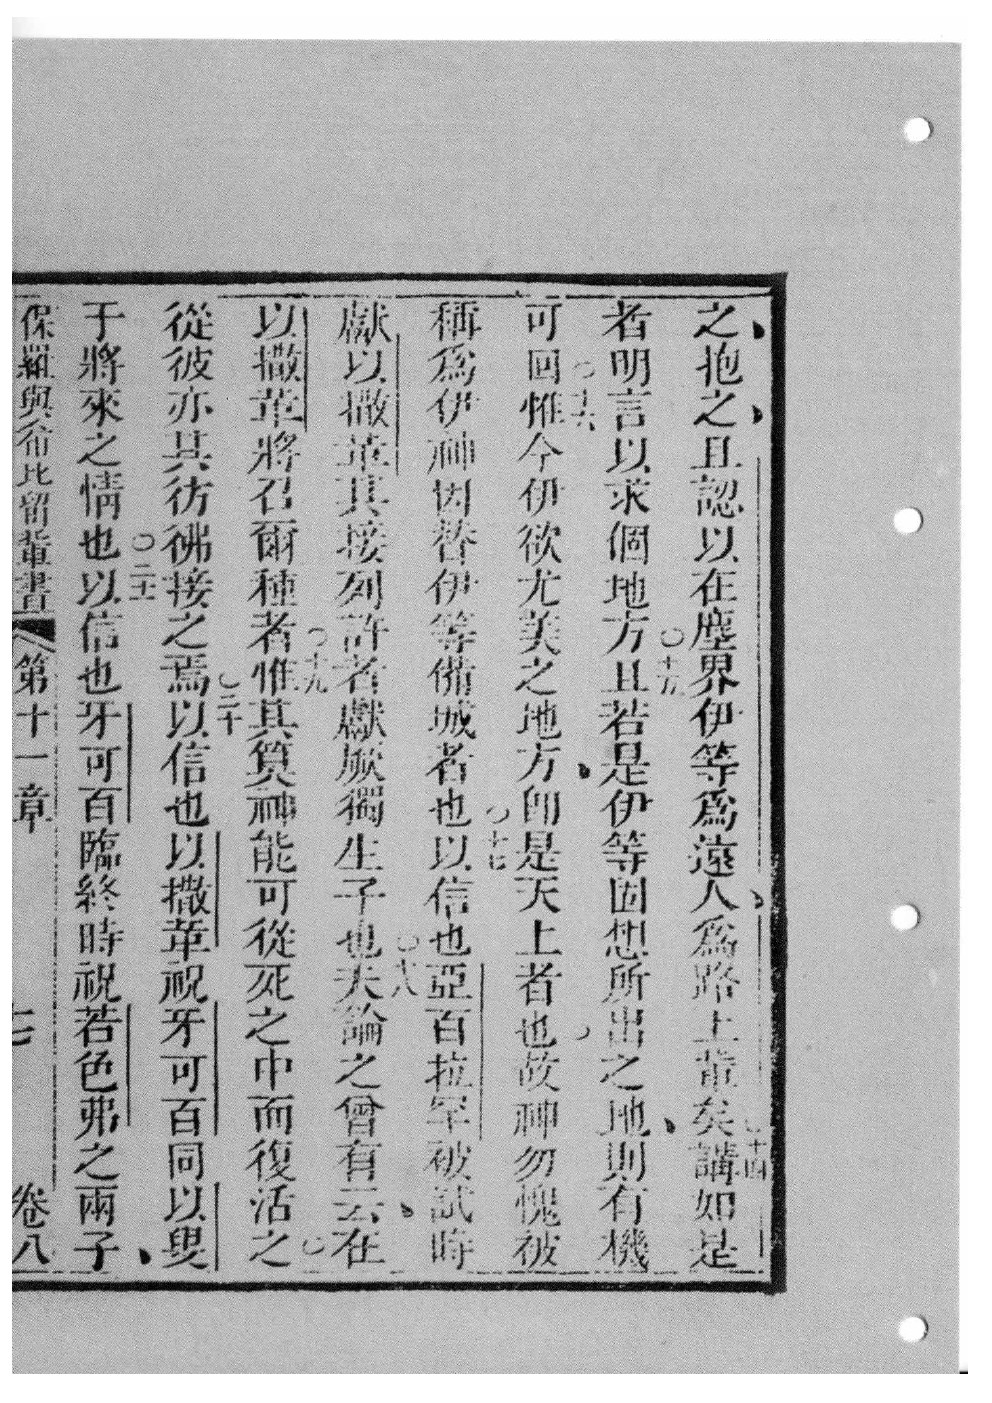 之抱之且認以在塵界伊等爲遠人爲路上輩矣○十四講如是
者明言以求個地方○十五且若是伊等固想所出之地則有機
可回○十六惟今伊欲尤美之地方卽是天上者也故神勿愧被
稱爲伊神因替伊等備城者也○十七以信也亞百拉罕被試時
獻以撒革其接列許者獻厥獨生子也○十八夫論之曾有云在
以撒革將召爾種者○十九惟其算神能可從死之中而復活之
從彼亦其彷彿接之焉○二十以信也以撒革祝牙可百同以叟
于將來之情也○二十一以信也牙可百臨終時祝若色弗之兩子
保羅與希比留輩書 第十一章 七 卷八